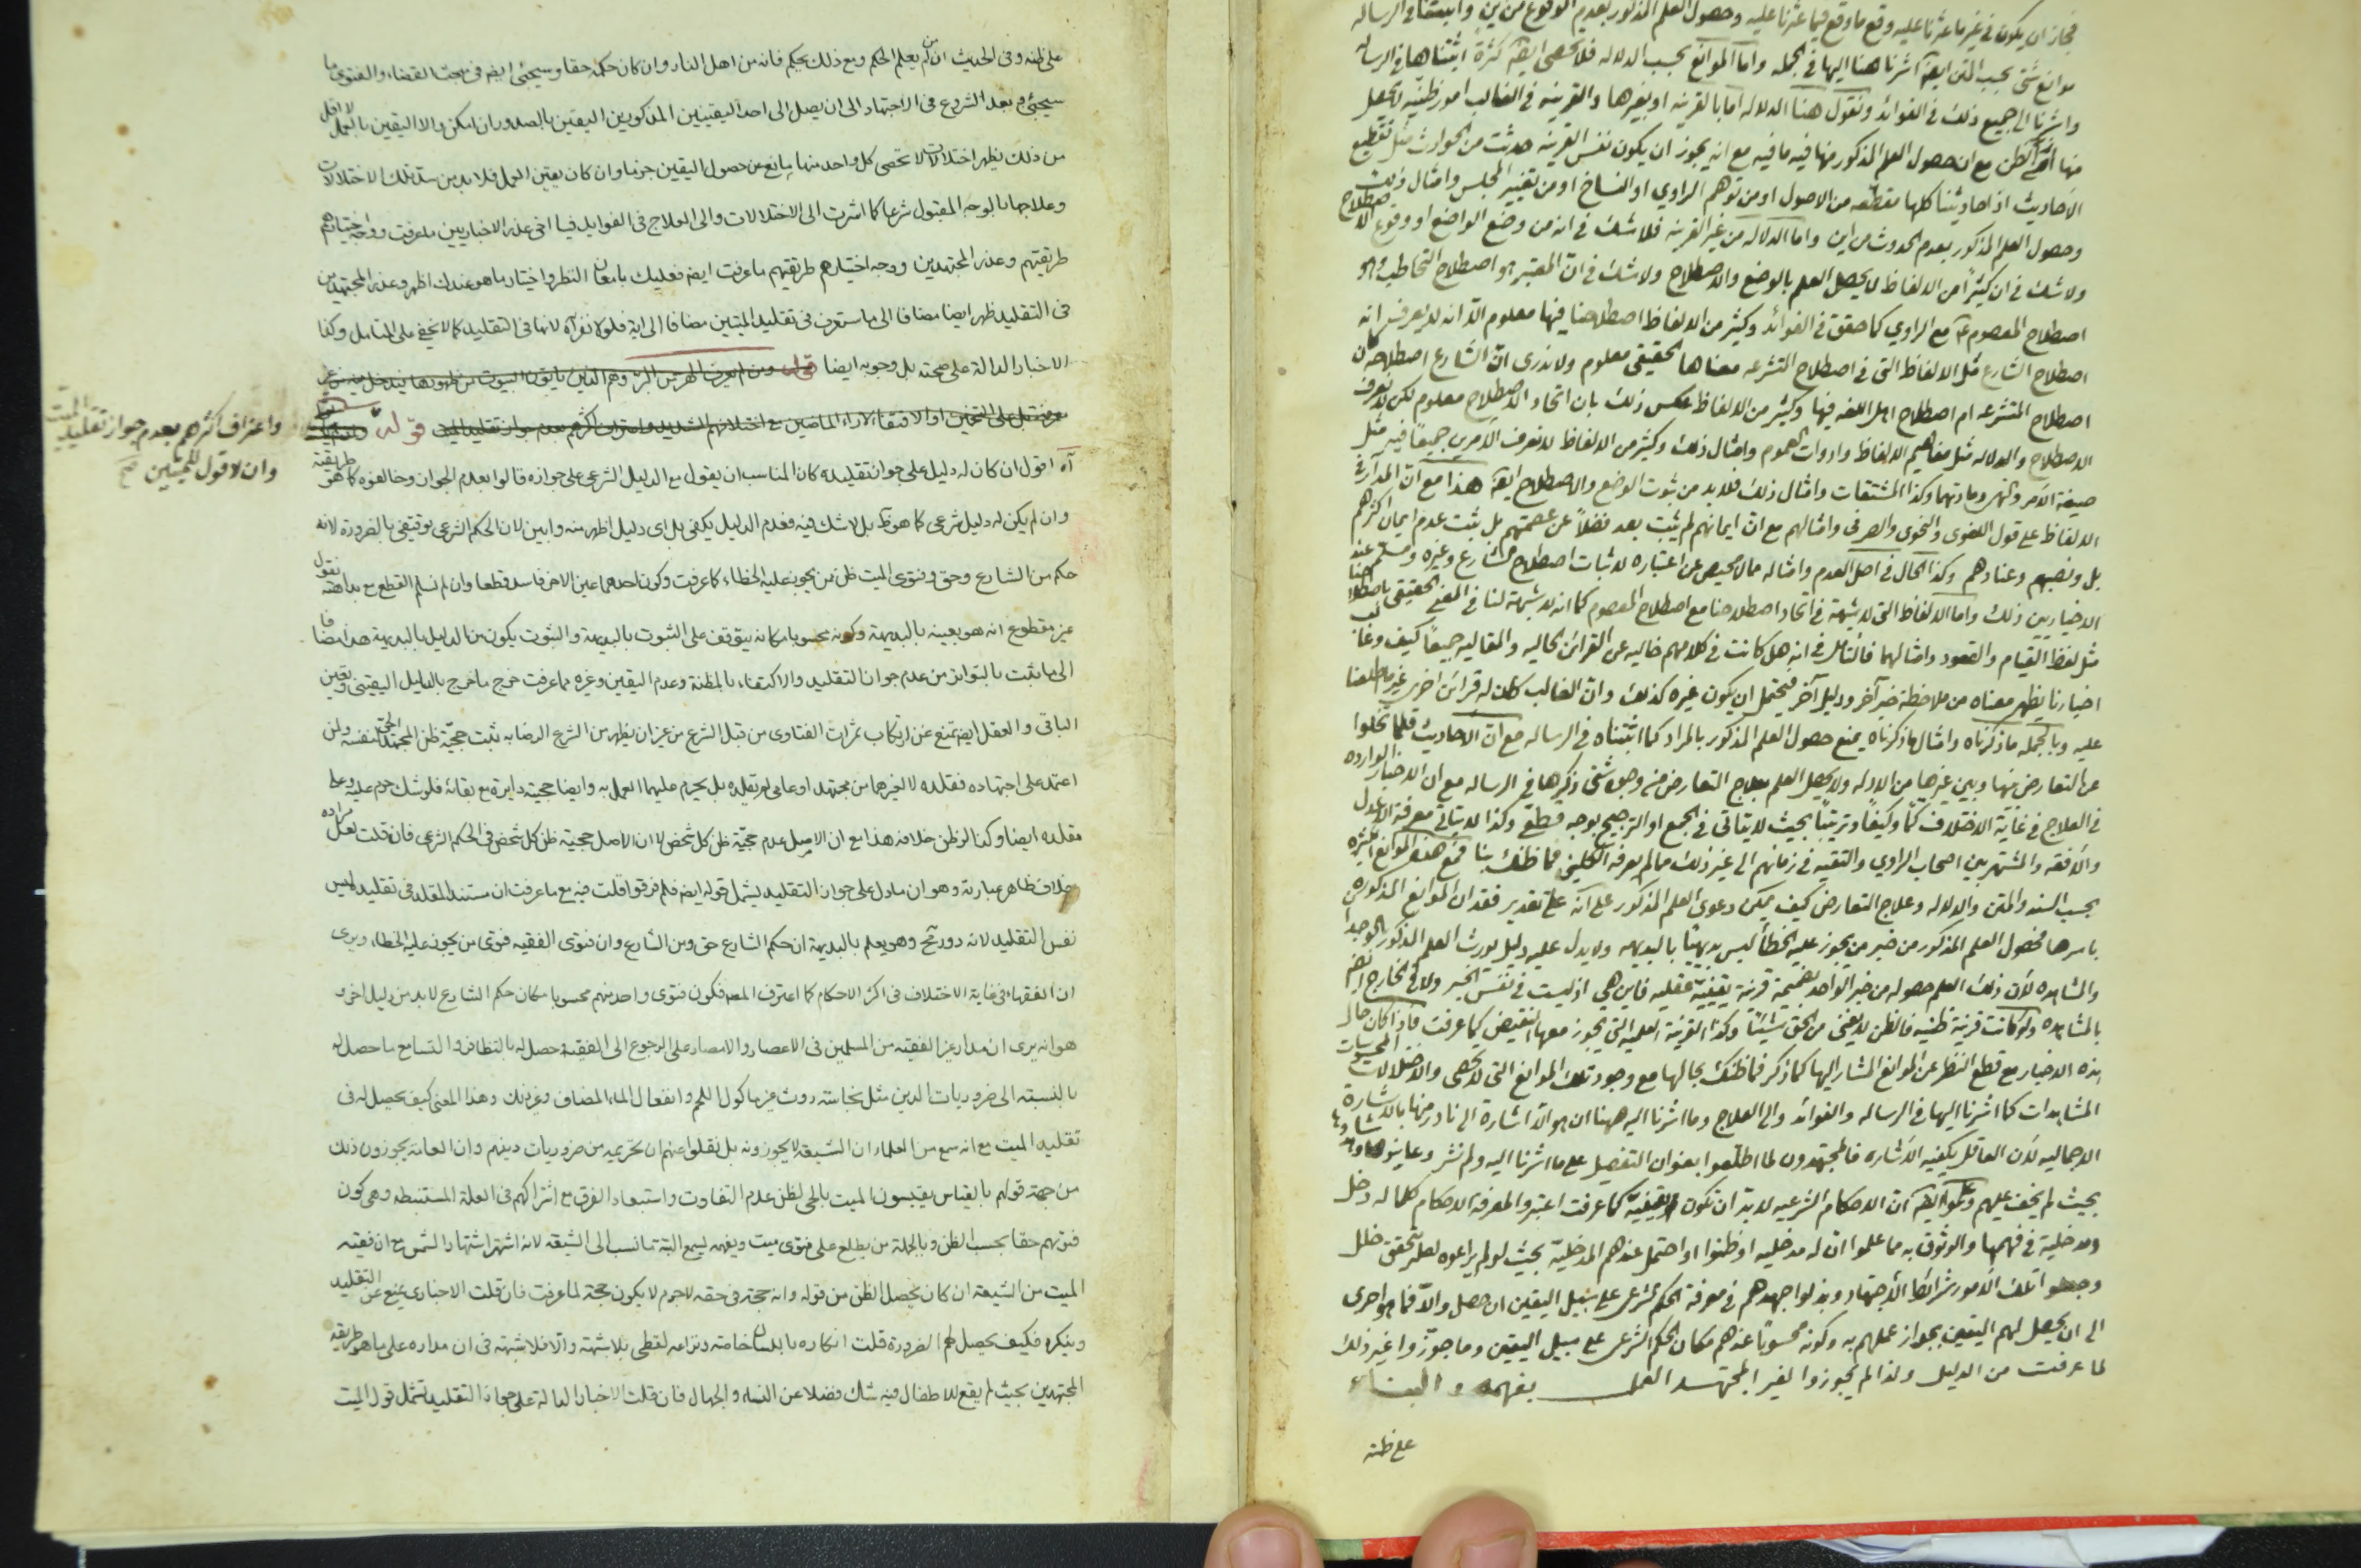 فجاز ان يكون في غير ما عثرنا عليه وقع ما وقع فيما عثرنا عليه وحصول العلم المذكور بعدم الوقوع من اين وابسطنا في الرساله
موانع شتى بحسب المتن ايضا اشرنا هنا اليها في الجمله واما الموانع بحسب الدلاله فلا تحصى ايضا كثرة اثبتناها في الرساله
واشرنا الى جميع ذلك في الفوائد ونقول هنا الدلاله اما بالقرينه او بغيرها والقرينه في الغالب امور ظنيه لا يحصل
منها الظن مع ان حصول العلم المذكور منها فيه ما فيه مع انه يجوز ان يكون نفس القرينه حدثت من الحوادث مثل تقطيع
الاحاديث اذ احاديثنا كلها مقطعه من الاصول او من توهم الراوي او النساخ او من تغيير المجلس وامثال ذلك
وحصول العلم المذكور بعدم الحدوث من اين واما الدلاله من غير القرينه فلا شك في انه من وضع الواضع او وقوع الاصطلاح
ولا شك في ان كثيرا من الالفاظ لا يحصل العلم بالوضع والاصطلاح ولا شك في ان المعتبر هو اصطلاح التخاطب وهو
اصطلاح المعصوم ع مع الراوي كما حقق في الفوائد وكثير من الالفاظ اصطلاحنا فيها معلوم الا انه لا يعرف انه
اصطلاح الشارع مثل الالفاظ التي في اصطلاح المتشرعه معناها الحقيقي معلوم ولا ندري ان الشارع اصطلاحه كان
اصطلاح المتشرعه ام اصطلاح اهل اللغه فيها وكثير من الالفاظ عكس ذلك بان اتحاد الاصطلاح معلوم لكن لا نعرف
الاصطلاح والدلاله مثل مفاهيم الالفاظ وادوات العموم وامثال ذلك وكثير من الالفاظ لا نعرف الامرين جميعا فيه مثل
صيغة الامر والنهي ومادتهما وكذا المشتقات وامثال ذلك فلا بد من ثبوت الوضع والاصطلاح ايضا هذا مع ان المدار في
الالفاظ على قول اللغوى والنحوى والصرفى وامثالهم مع ان ايمانهم لم يثبت بعد فضلا عن عصمتهم بل ثبت عدم ايمان اكثرهم
بل ونصبهم وعنادهم وكذا الحال في اصل العدم وامثاله مما لا محيص عن اعتباره لاثبات اصطلاح الشارع وغيره ومسلم عند
الاخباريين ذلك واما الالفاظ التي لا شبهة في اتحاد اصطلاحنا مع اصطلاح المعصوم كما انه لا شبهة لنا في المعنى الحقيقي باصطلاحنا
مثل لفظ القيام والقعود وامثالهما فالتامل في انه هل كانت في كلامهم خاليه عن القرائن الحاليه والمقاليه جميعا كيف وغالب
اخبارنا يظهر معناه من ملاحظة خبر آخر ودليل آخر فيحتمل ان يكون غيره كذلك وان الغالب كان له قرائن اخرى غير ما اطلعنا
عليه وبالجمله ما ذكرناه وامثال ما ذكرناه يمنع حصول العلم المذكور بالمراد كما اثبتناه في الرساله مع ان الاحاديث قلما تخلوا
عن التعارض منها وبين غيرها من الادله ولا يحصل العلم بعلاج التعارض من وجوه شتى ذكرها في الرساله مع ان الاخبار الوارده
في العلاج في غاية الاختلاف كما وكيفا وترتيبا بحيث لا يتاتى في الجمع او الترجيح بوجه قطعي وكذا لا يتاتى معرفة الاعدل
والافقه والمشتهر بين اصحاب الراوي والتقيه في زمانهم الى غير ذلك مما لم يعرفه الكليني فما ظنك بنا فمع هذه الموانع الكثيره
بحسب السند والمتن والدلاله وعلاج التعارض كيف يمكن دعوى العلم المذكور على انه على تقدير فقدان الموانع المذكوره
باسرها فحصول العلم المذكور من خبر من يجوز عليه الخطأ ليس بديهيا بالبديهه ولا يدل عليه دليل يورث العلم المذكور بالوجدان
والمشاهده لان ذلك العلم حصوله من خبر الواحد بضميمة قرينة يقينية عقليه فاين هي اذ ليست في نفس الخبر ولا في الخارج
بالمشاهده ولو كانت قرينة ظنيه فالظن لا يغني من الحق شيئا وكذا القرينة العلميه التي يجوز معها النقيض كما عرفت فاذا كان حال
هذه الاخبار مع قطع النظر عن الموانع المشار اليها كما ذكر فما ظنك بحالها مع وجود تلك الموانع التي لا تحصى والاختلالات المحسوسات
المشاهدات كما اشرنا اليها في الرساله والفوائد والى العلاج وما اشرنا اليه ههنا ان هو الا اشارة الى نادر منها بالاشارة
الاجماليه لان العاقل يكفيه الاشاره فالمجتهدون لما اطلعوا بعنوان التفصيل على ما اشرنا اليه ولم نشر وعاينوها
بحيث لم يخف عليهم وعلموا ايضا ان الاحكام الشرعيه لا بد ان تكون يقينية كما عرفت اعتبروا لمعرفة الاحكام كلما له دخل
ومدخلية في فهمها والوثوق به مما علموا ان له مدخليه او ظنوا او احتمل عندهم المدخلية بحيث لو لم يراعوه لعله يتحقق خلل
وجعلوا تلك الامور شرائط الاجتهاد وبذلوا جهدهم في معرفة الحكم الشرعي على سبيل اليقين ان حصل والا فما هو احرى
الى ان يحصل لهم اليقين بجواز عملهم به وكونه محسوبا عندهم مكان الحكم الشرعي على سبيل اليقين وما جوزوا غير ذلك
لما عرفت من الدليل ولذا لم يجوزوا لغير المجتهد العمل بفهمه والبناء
على ظنه
على ظنه وفى الحديث ان من لم يعلم الحكم ومع ذلك يحكم فانه من اهل النار وان كان حكمه حقا وسيجئ ايضا فى مبحث القضاء والفتوى ما
سيجئ وبعد الشروع فى الاجتهاد الى ان يصل الى احد اليقينين المذكورين اليقين بالصدور ان امكن والا اليقين بالعمل لا اقل
من ذلك يظهر اختلالات لا تحصى كل واحد منها مانع عن حصول اليقين جزما وان كان يقين العمل فلا بد من سد تلك الاختلالات
وعلاجها بالوجه المقبول شرعا كما اشرت الى الاختلالات والى العلاج فى الفوايد فيا اخى عذر الاخباريين ما عرفت ووجه اختيارهم
طريقتهم وعذر المجتهدين ووجه اختيارهم طريقتهم ما عرفت ايضا فعليك بامعان النظر واختيار ما هو عندك اظهر وعذر المجتهدين
فى التقليد ظهر ايضا مضافا الى ما ستعرف فى تقليد الميتين مضافا الى اية فلولا نفر آه لانها فى التقليد كما لا يخفى على المتامل وكذا
الاخبار الدالة على صحته بل وجوبه ايضا قوله
قوله
واعتراف اكثرهم بعدم جواز تقليد الميت
وان لا قول للميتين صح
آه اقول ان كان له دليل على جواز تقليده كان المناسب ان يقول مع الدليل الشرعى على جوازه قالوا بعدم الجواز وخالفوه كما هو طريقته
وان لم يكن له دليل شرعى كما هو ظ بل لا شك فيه فعدم الدليل يكفى بل اى دليل اظهر منه وابين لان الحكم الشرعى توقيفى بالضرورة لانه
حكم من الشارع وحق وفتوى الميت ظن من يجوز عليه الخطاء كما عرفت وكون احدهما عين الاخر فاسد قطعا وان لم نسلم القطع مع بداهته نقول
غير مقطوع انه هو بعينه بالبديهة وكونه محسوبا مكانه يتوقف على الثبوت بالبديهة والثبوت يكون من الدليل بالبديهة هذا مضافا
الى ما ثبت بالتواتر من عدم جواز التقليد والاكتفاء بالمظنة وعدم اليقين وغيره مما عرفت خرج ما خرج بالدليل اليقينى وبقى
الباقى والعقل ايضا يمنع عن ارتكاب ثمرات الفتاوى من قبل الشرع من غير ان يظهر من الشرع الرضا به نثبت حجية ظن المجتهد الحى لنفسه ولمن
اعتمد على اجتهاده فقلده لا لغيرهما من مجتهد او عامى لم يقلده بل يحرم عليهما العمل به وايضا حجيته دايرة مع بقائه فلو شك حرم عليه وعلى
مقلده ايضا وكذا لو ظن خلافه هذا مع ان الاصل عدم حجية ظن كل شخص لا ان الاصل حجية ظن كل شخص فى الحكم الشرعى فان قلت لعل مراده
خلاف ظاهر عبارته وهو ان ما دل على جواز التقليد يشمل قوله ايضا فلم فرقوا قلت فيه مع ما عرفت ان مستند المقلد فى تقليده ليس
نفس التقليد لانه دور تح وهو يعلم بالبديهة ان حكم الشارع حق ومن الشارع وان فتوى الفقيه فتوى من يجوز عليه الخطاء ويرى
ان الفقهاء فى غاية الاختلاف فى اكثر الاحكام كما اعترف المص فكون فتوى واحد منهم محسوبا مكان حكم الشارع لا بد من دليل اخر و
هو انه يرى ان مدار غير الفقيه من المسلمين فى الاعصار والامصار على الرجوع الى الفقيه حصل له بالتظافر والتسامع ما حصل له
بالنسبة الى ضروريات الدين مثل نجاسة روث غير ماكول اللحم وانفعال الماء المضاف وغير ذلك وهذا المعنى كيف يحصل له فى
تقليد الميت مع انه سمع من العلماء ان الشيعة لا يجوزونه بل نقلوا عنهم ان تحريمه من ضروريات دينهم وان العامة يجوزون ذلك
من جهة قولهم بالقياس يقيسون الميت بالحى لظن عدم التفاوت واستبعاد الفرق مع اشتراكهم فى العلة المستنبطة وهى كون
فتويهم حقا بحسب الظن وبالجملة من يطلع على فتوى ميت ويفهمه ليسمع البتة ما نسب الى الشيعة لانه اشتهر اشتهار الشمس مع ان فقيه
الميت من الشيعة ان كان يحصل الظن من قوله وانه حجة فى حقه لا جرم لا يكون حجة لما عرفت فان قلت الاخبارى يمنع عن التقليد
وينكره فكيف يحصل لهم الضرورة قلت انكاره باللسان خاصة ونزاعه لفظى بلا شبهة والا فلا شبهة فى ان مداره على ما هو طريقة
المجتهدين بحيث لم يقع للاطفال فيه شك فضلا عن النساء والجهال فان قلت الاخبار الدالة على جواز التقليد تشمل قول الميت